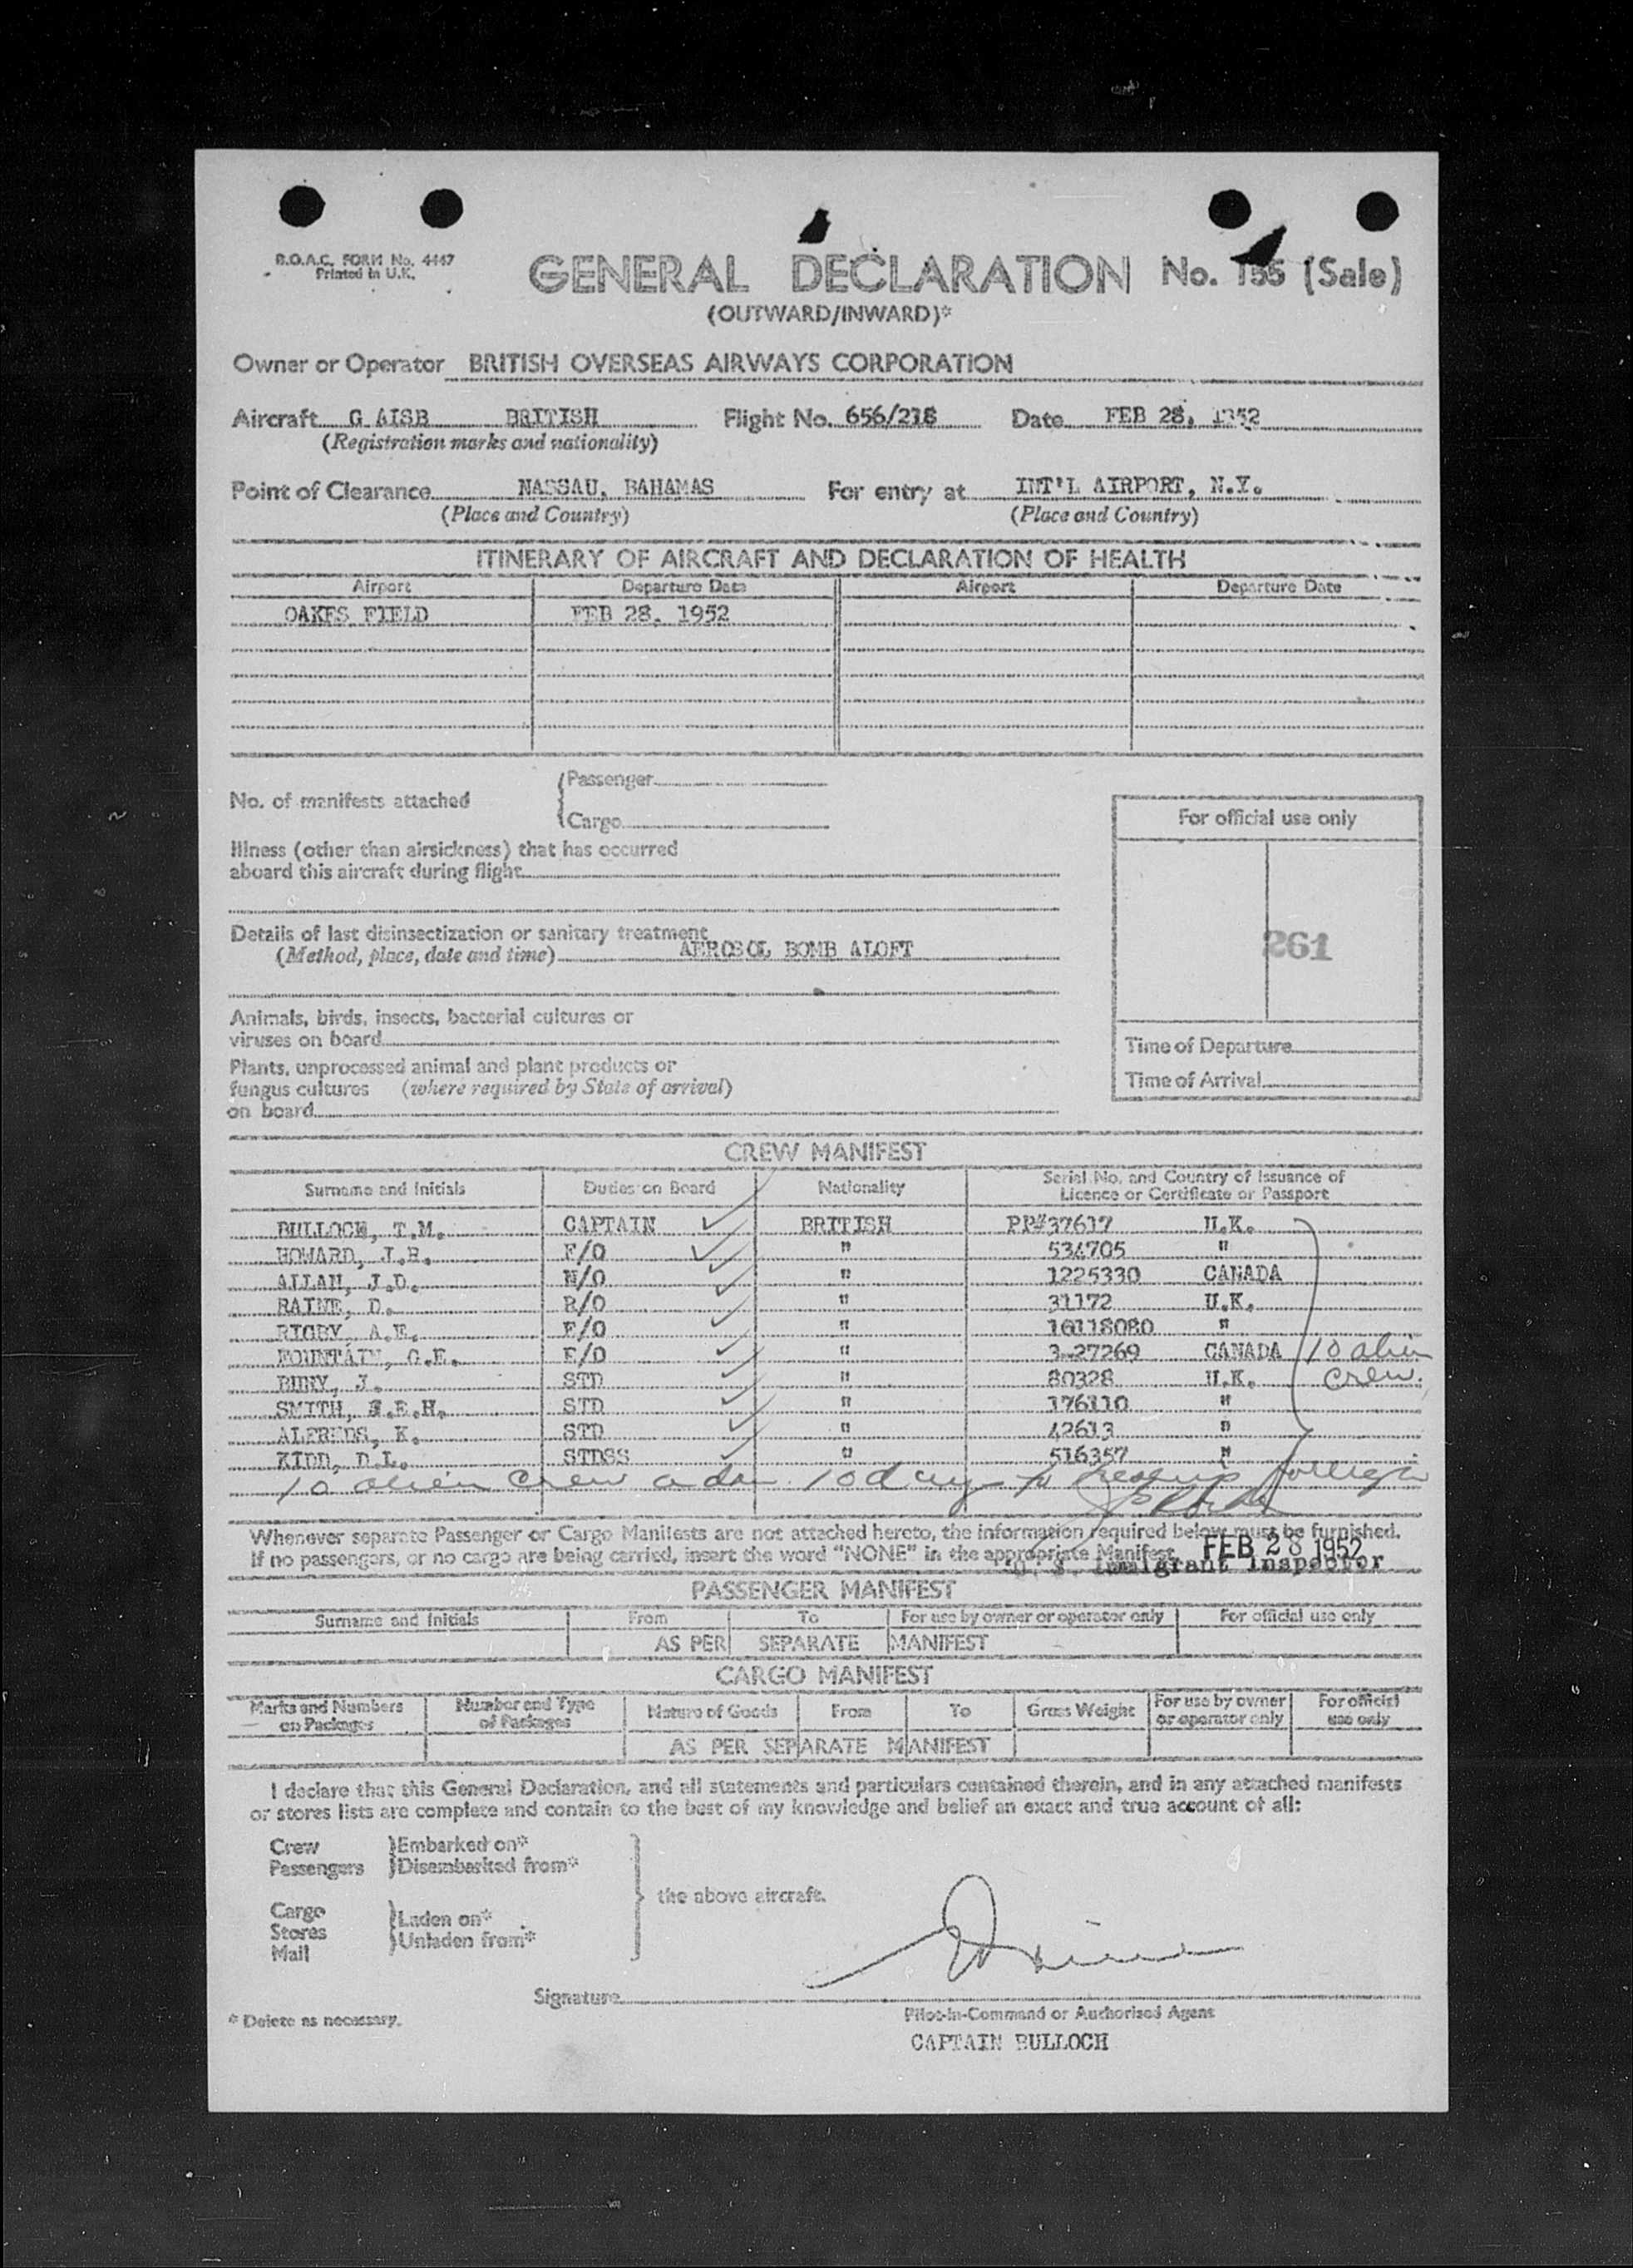 B.O.A.C. FORM No. 4447
Printed in U.K.
GENERAL DECLARATION No. 155 (Sale)
(OUTWARD/INWARD)*
Owner or Operator BRITISH OVERSEAS AIRWAYS CORPORATION
Aircraft G AISB BRITISH Flight No. 656/218 Date FEB 28, 1952
(Registration marks and nationality)
Point of Clearance NASSAU, BAHAMAS For entry at INT'L AIRPORT, N.Y.
(Place and Country) (Place and Country)
ITINERARY OF AIRCRAFT AND DECLARATION OF HEALTH
Airport Departure Date Airport Departure Date
OAKES FIELD FEB 28, 1952
No. of manifests attached
Passenger
Cargo
For official use only
Illness (other than airsickness) that has occurred
aboard this aircraft during flight
Details of last disinsectization or sanitary treatment
(Method, place, date and time) AEROSOL BOMB ALOFT
261
Animals, birds, insects, bacterial cultures or
viruses on board
Time of Departure
Plants, unprocessed animal and plant products or
fungus cultures (where required by State of arrival)
Time of Arrival
on board
CREW MANIFEST
Surname and Initials Duties on Board Nationality Serial No. and Country of Issuance of
Licence or Certificate or Passport
BULLOCH, T.M. CAPTAIN BRITISH PP#37617 U.K.
HOWARD, J.B. F/O " 534705 "
ALLAN, J.D. N/O " 1225330 CANADA
RAINE, D. R/O " 31172 U.K.
RIGBY, A.E. E/O " 10118080 "
FOUNTAIN, G.E. E/O " 3-27269 CANADA 10 alien
BURY, J. STD " 80328 U.K. crew.
SMITH, E.E.H. STD " 176110 "
ALFREDS, K. STD " 42613 "
KIDD, D.L. STDSS " 516357 "
10 alien crew adm. 10 days to reship foreign
Whenever separate Passenger or Cargo Manifests are not attached hereto, the information required below must be furnished.
If no passengers, or no cargo are being carried, insert the word "NONE" in the appropriate Manifest.
FEB 28 1952
U. S. Immigrant Inspector
PASSENGER MANIFEST
Surname and Initials From To For use by owner or operator only For official use only
AS PER SEPARATE MANIFEST
CARGO MANIFEST
Marks and Numbers on Packages Number and Type of Packages Nature of Goods From To Gross Weight For use by owner or operator only For official use only
AS PER SEPARATE MANIFEST
I declare that this General Declaration, and all statements and particulars contained therein, and in any attached manifests
or stores lists are complete and contain to the best of my knowledge and belief an exact and true account of all:
Crew Embarked on*
Passengers Disembarked from*
the above aircraft.
Cargo Laden on*
Stores Unladen from*
Mail
Signature
* Delete as necessary.
Pilot-in-Command or Authorised Agent
CAPTAIN BULLOCH